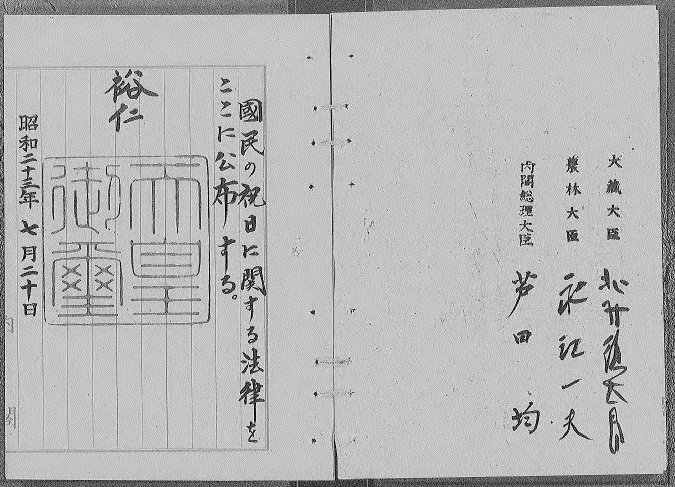 大藏大臣 北村徳太郎
農林大臣 永江一夫
内閣総理大臣 芦田均
國民の祝日に関する法律を
ここに公布する。
裕仁
天皇
御璽
昭和二十三年七月二十日
内閣